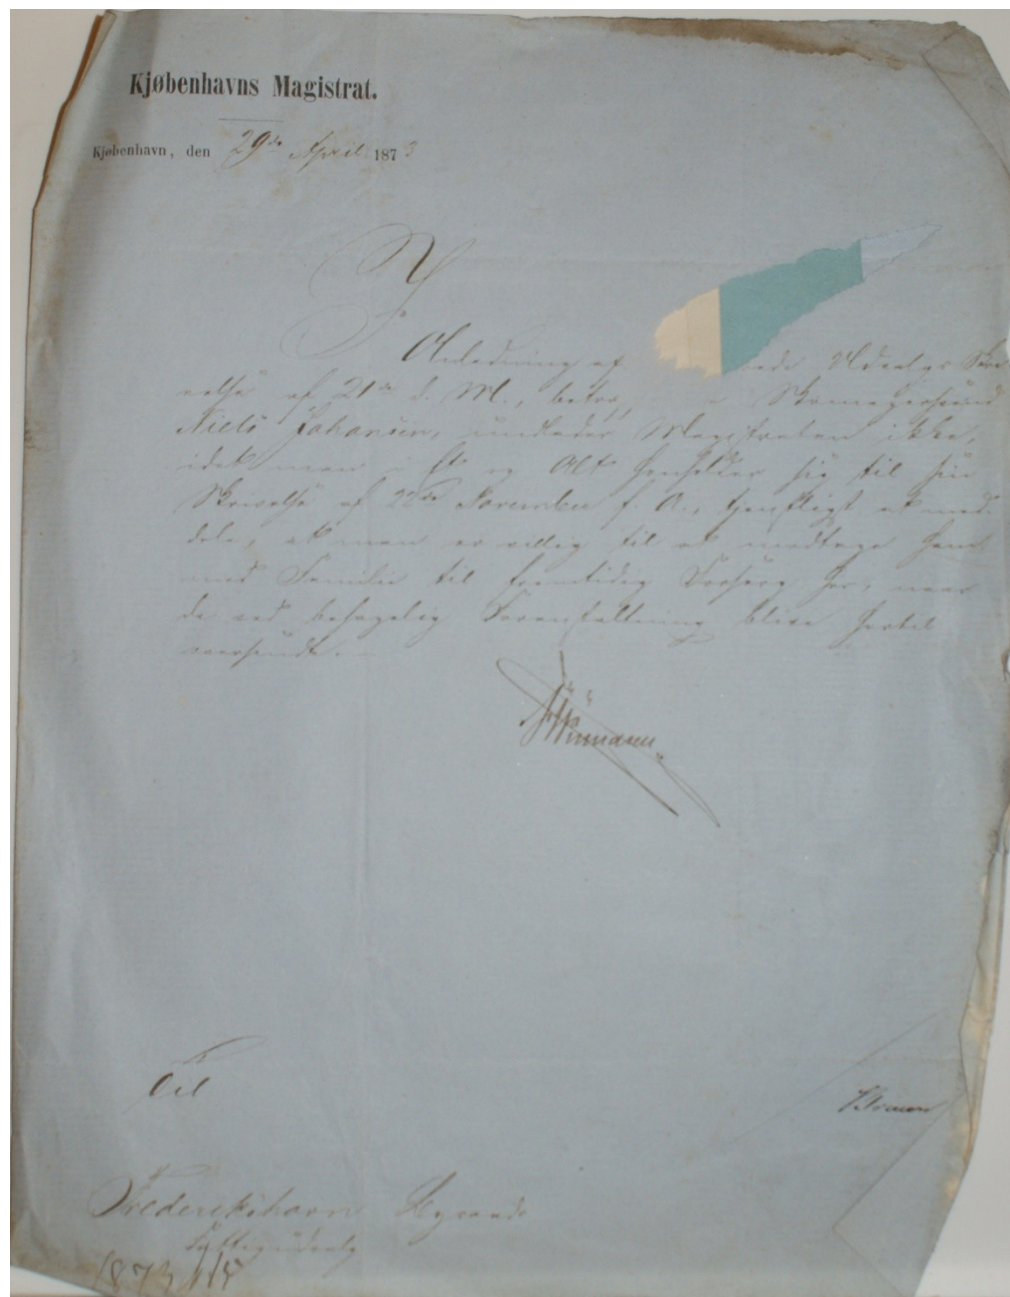 Kjøbenhavns Magistrat.
Kjøbenhavn, den 29de April 1873
I
Anledning af Udvalgs Skri-
velse af 21de d. M., betræf Skomagersvend
Niels Johansen, undlader Magistraten ikke,
idet man i Et og Alt henholder sig til sin
Skrivelse af 22de November f. A., tjenstligst at med-
dele, at man er villig til at modtage ham
med Familie til fremtidig Forsørg her, naar
de ved behagelig Foranstaltning blive hertil
oversendte.
Til
Frederikshavn Byraads
1873